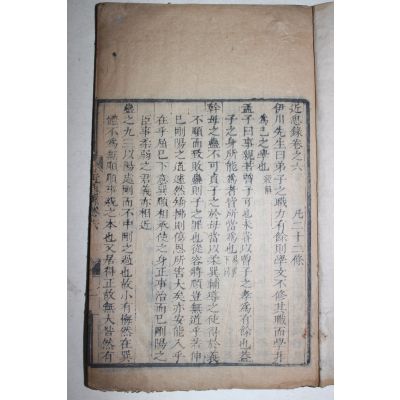 近思錄卷之六
凡二十二條
伊川先生曰弟子之職力有餘則學文不修其職而學非
為己之學也
孟子曰事親若曾子可也未嘗以曾子之孝為有餘也蓋
子之身所能為者皆所當為也
幹母之蠱不可貞子之於母當以柔巽輔導之使得於義
不順而致敗蠱則子之罪也從容將順豈無道乎若伸
己剛陽之道遽然矯拂則傷恩所害大矣亦安能入乎
在乎屈己下意巽順相承使之身正事治而已剛陽之
臣事柔弱之君義亦相近
蠱之九三以陽處剛而不中剛之過也故小有悔然在巽
體不為無順順事親之本也又居得正故無大咎然有